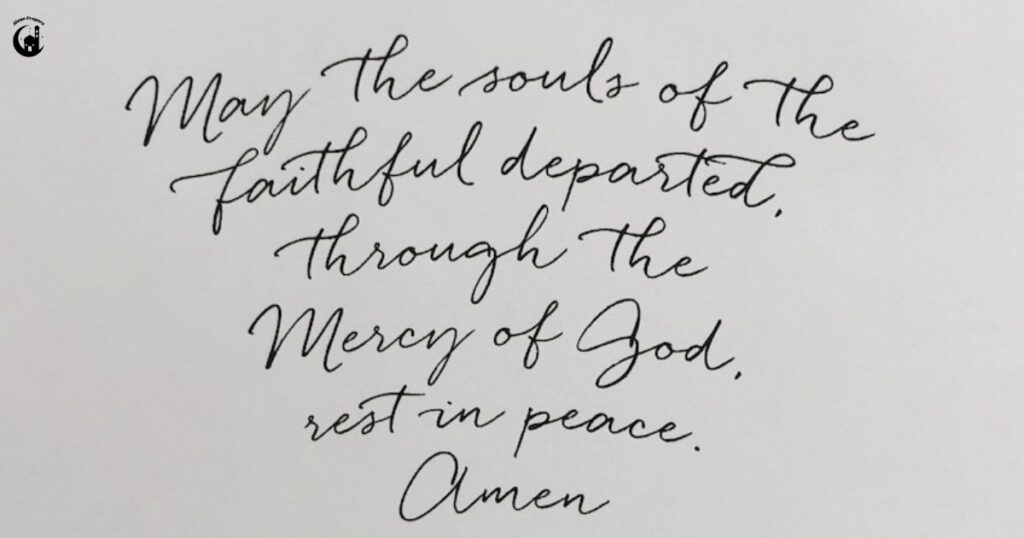 May the souls of the
faithful departed,
through the
Mercy of God,
rest in peace.
Amen